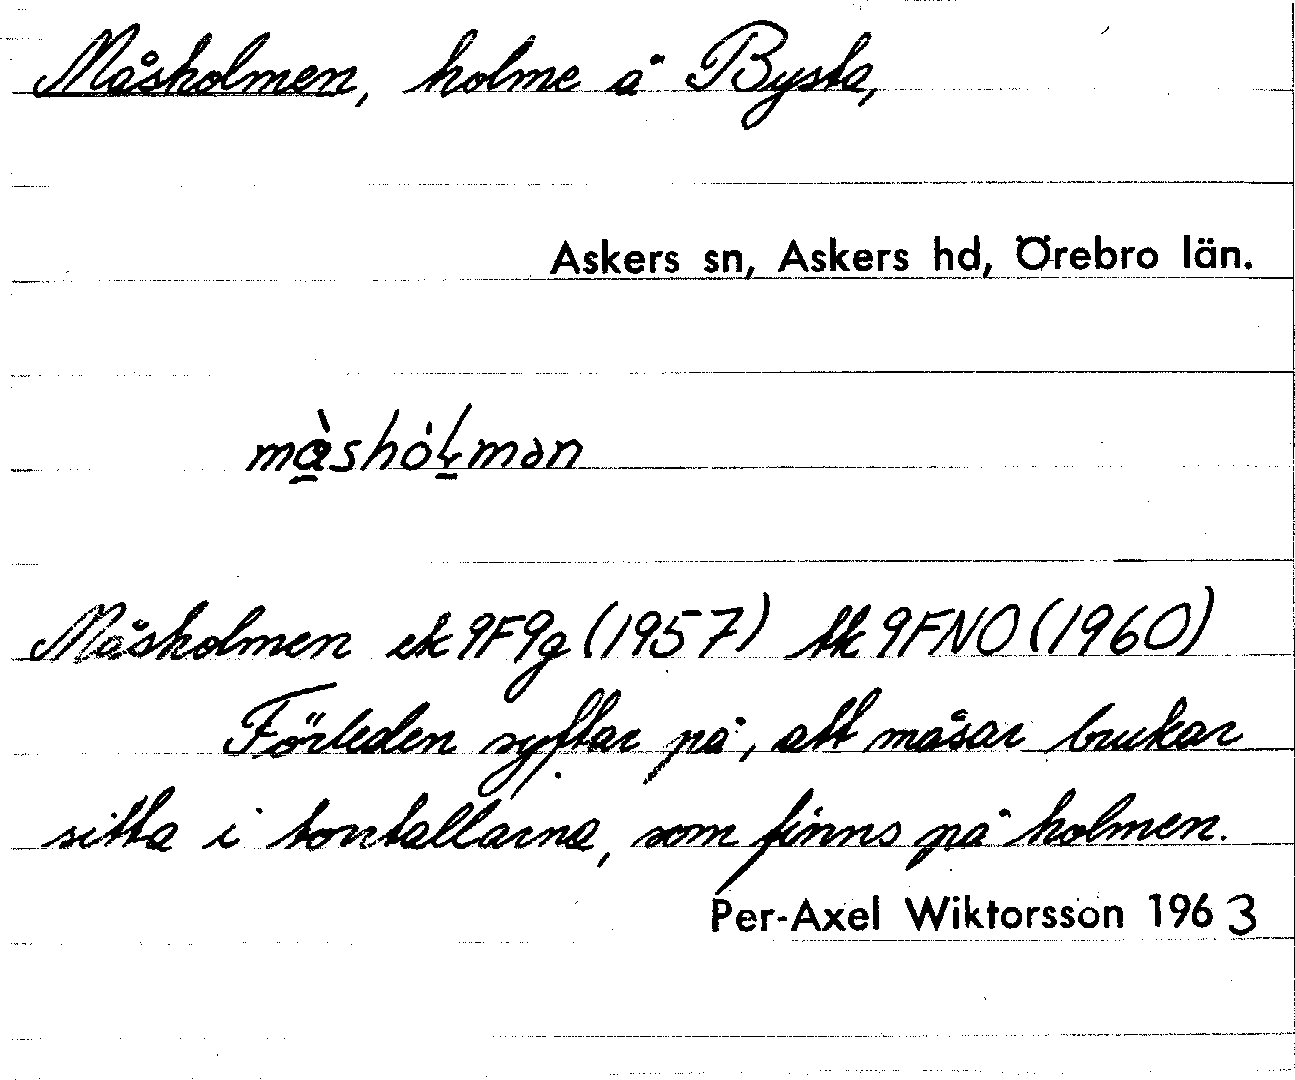 Måsholmen, holme å Bysta,
Askers sn, Askers hd, Örebro län.
Måsholmen ek 9F9g (1957) tk 9FNO (1960)
Förleden syftar på, att måsar brukar
sitta i torrtallarna, som finns på holmen.
Per-Axel Wiktorsson 1963